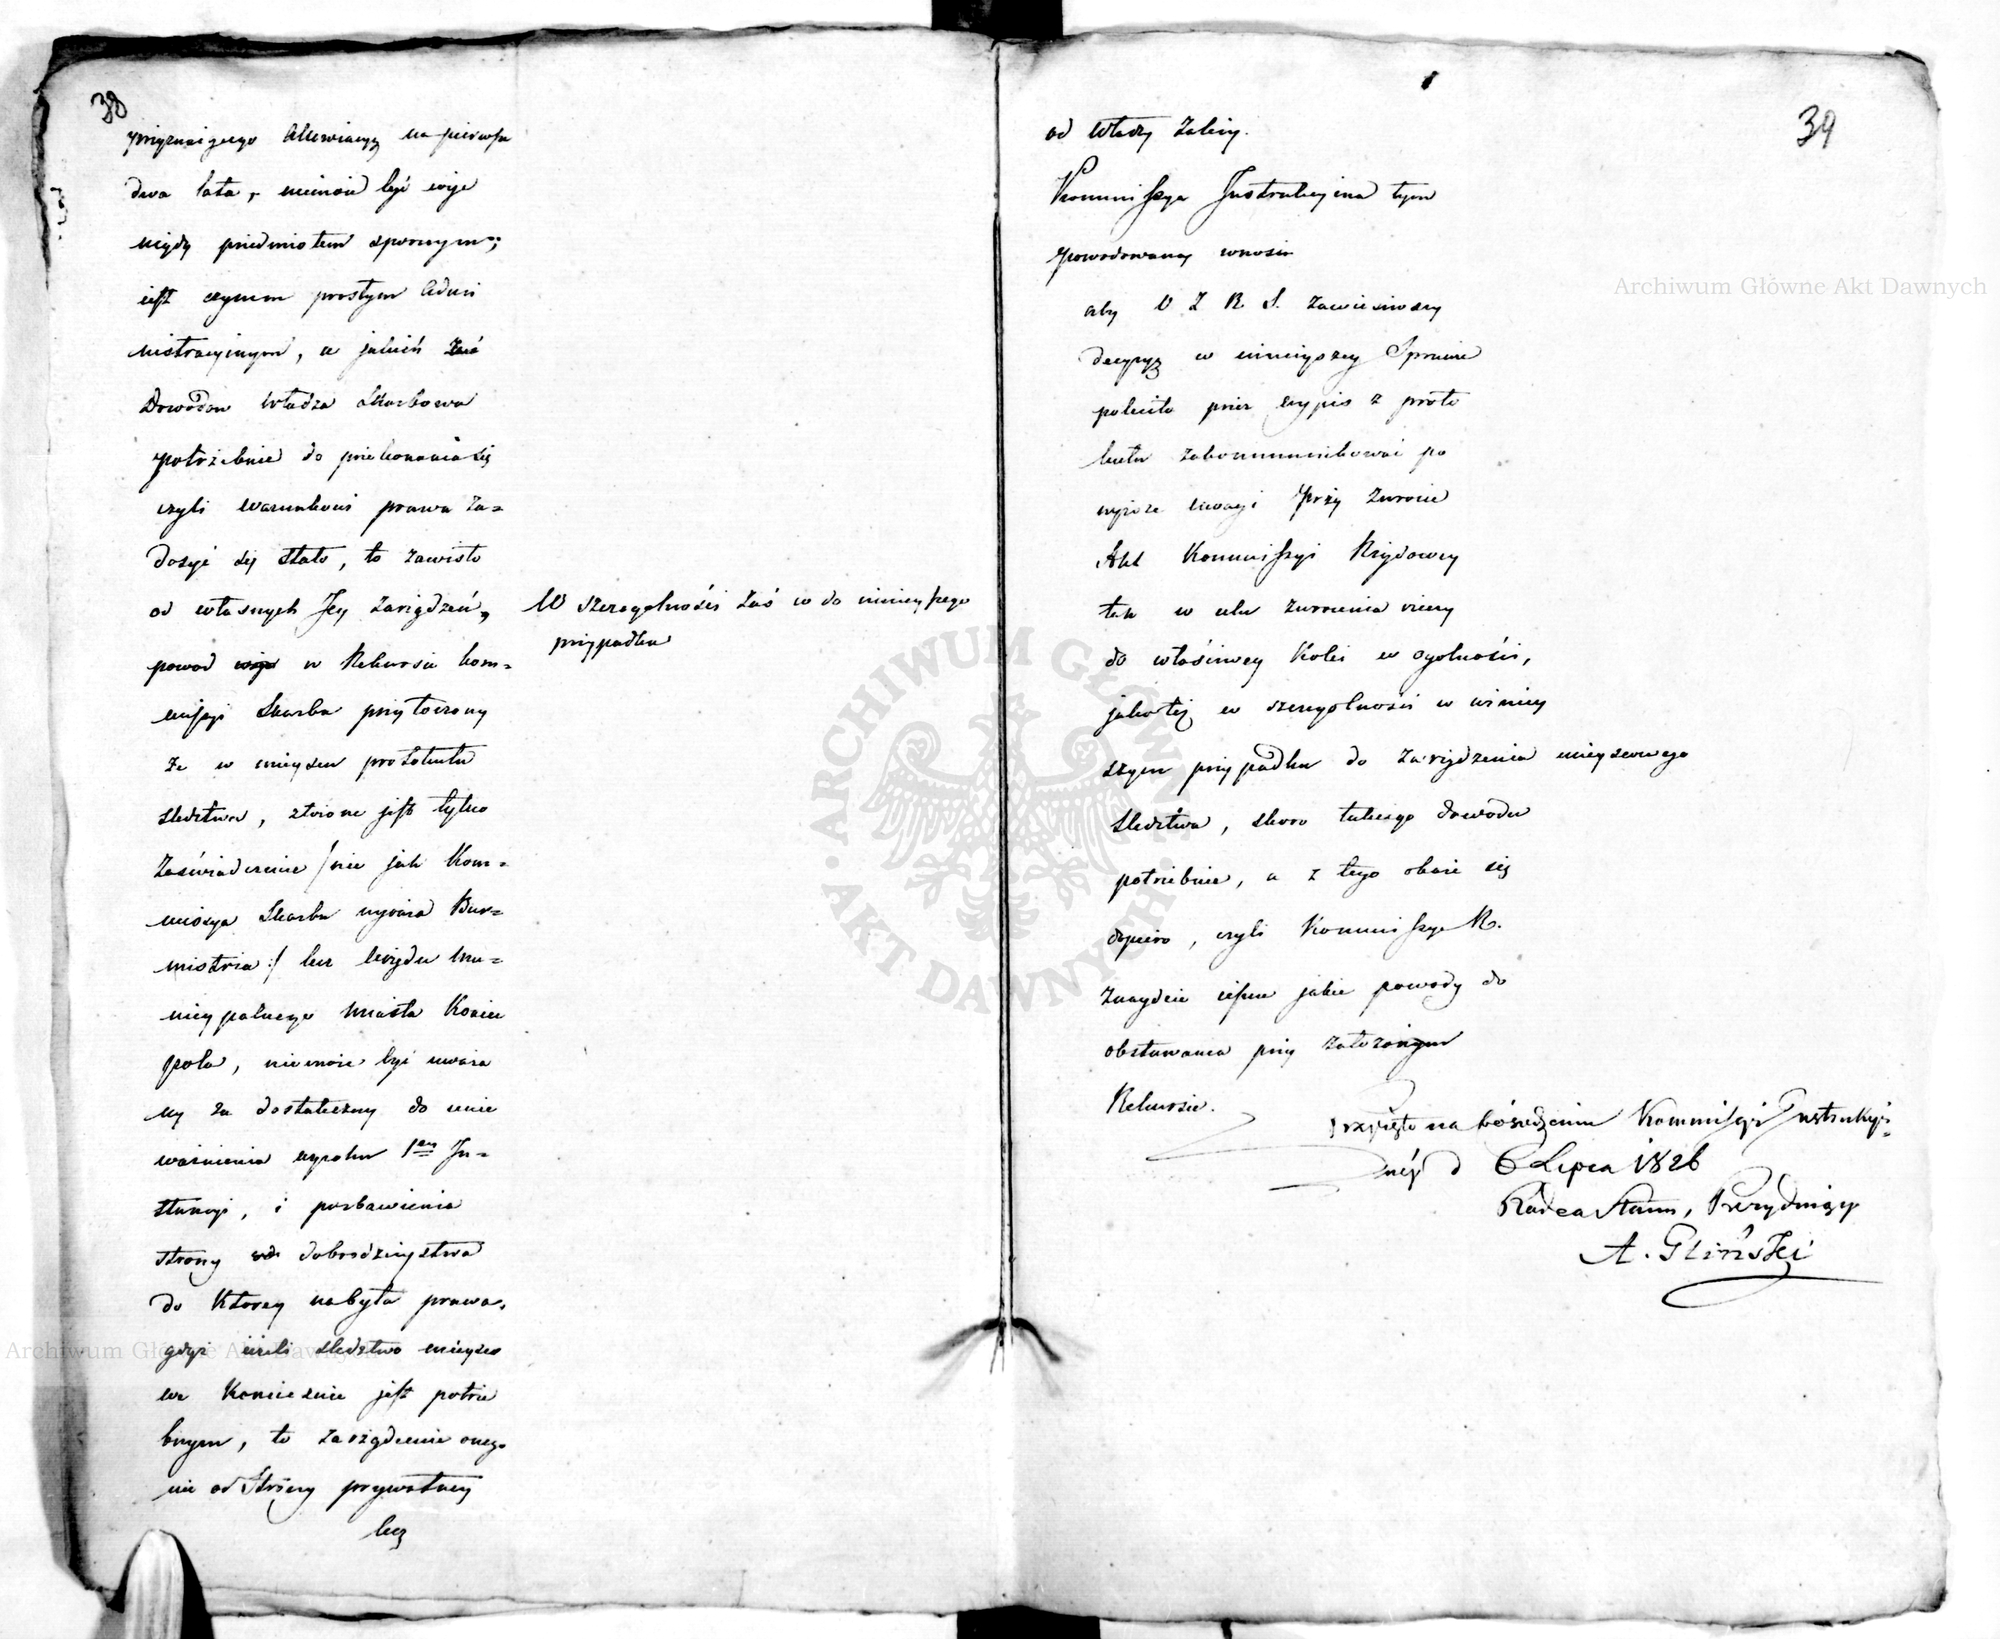 38
przyznaiącego Allewiacyą na pierwsze
dwa lata, niemoże być więc
między przedmiotem spornym;
iest czynem prostym Admi
nistracyinym, a jakich zaś
Dowodow Władza Skarbowa
potrzebuie do przekonania się
czyli warunkowi prawa za=
dosyć się stało, to zawisło
od własnych Jey zarządzeń,
powod więc w Rekursie kom=
missyi Skarbu przytoczony
że w mieyscu protokułu
śledztwa, złożone jest tylko
Zaświadczenie /nie jak Kom=
missya Skarbu wyraża Bur=
mistrza:/ lecz Urzędu Mu=
nicypalnego miasta Koniec
pola, niemoże być uważa
ny za dostateczny do unie
ważnienia wyroku 1ey In=
stancyi, i pozbawienia
strony dobrodzieystwa
do ktorey nabyła prawa,
gdyż ieżeli śledztwo mieysco
we koniecznie jest potrze
bnym, to zarządzenie onego
nie od Strony prywatney
lecz
W szczegolności zaś co do ninieyszego
przypadku
39
od Władzy zależy.
Kommissya Instrukcyina tym
powodowana wnosi
aby U Z R. S. zawiesiwszy
decyzyą w ninieyszey Sprawie
poleciło przez wypis z proto
kułu zakommunikować po
wyższe uwagi przy zwrocie
Akt Kommissyi Rządowey
tak w celu zwrócenia rzeczy
do właściwey kolei w ogolności,
jakoteż w szczegolności w niniey
szym przypadku do zarządzenia mieyscowego
śledztwa, skoro takiego dowodu
potrzebuie, a z tego okaże się
dopiero, czyli Kommissya R.
znaydzie iesz​cze jakie powody do
obstawania przy założonym
Rekursie.
Przyięto na posiedzeniu Kommissyi Instrukcyi=
néy d 6 Lipca 1826
Radca Stanu, Prezyduiący
A. Gliński
Archiwum Główne Akt Dawnych
Archiwum Główne Akt Dawnych
ARCHIWUM GŁÓWNE AKT DAWNYCH